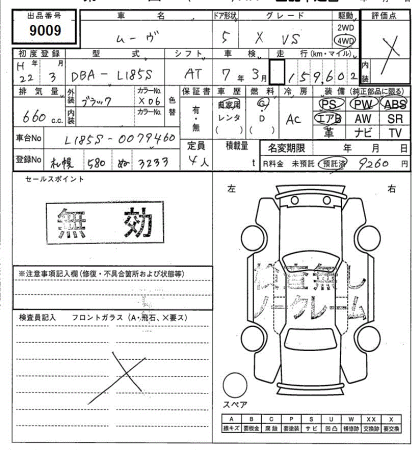 出品番号 車名 ドア形状 グレード 駆動 評価点
9009 ムーヴ 5 X VS 2WD 4WD
初度登録 型式 シフト 車検 走行(km・マイル) 外装
H22年3月 DBA-L185S AT 7年3月 159,602 内装
排気量 外装 カラーNo. 色替 保証書 車歴 燃料 冷房 装備(純正部品に限る)
660c.c. ブラック X06 有・無 自家用 レンタ ( ) G D ( ) AC PS PW ABS
内装 カラーNo. エアB AW SR
革 ナビ TV
車台No L185S-0079460 定員 積載量 名変期限 年 月 日
登録No 札幌 580 ぬ 3233 4人 t R料金 未預託 預託済 9260円
セールスポイント
無効
左 右
検査無し
ノークレーム
※注意事項記入欄(修復・不具合箇所および状態等)
検査員記入 フロントガラス(A・飛石、×要ス)
スペア
A B C P S U W X XX
線キズ 要板金 腐蝕 要塗装 サビ 凹凸 補修跡 交換跡 要交換